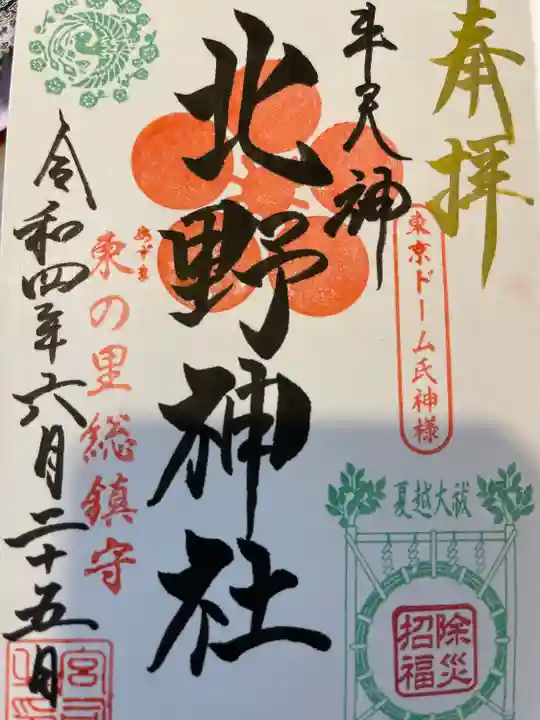 奉拝
東京ドーム氏神様
牛天神
北野神社
あづま
東の里総鎮守
令和四年六月二十五日
夏越大祓
除災
招福